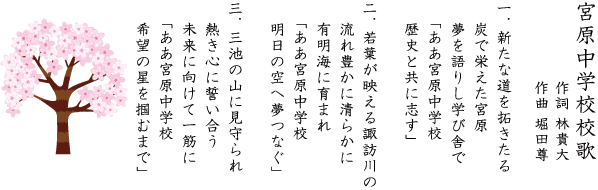 宮原中学校校歌
作詞 林貴大
作曲 堀田尊
一．新たな道を拓きたる
炭で栄えた宮原
夢を語りし学び舎で
「ああ宮原中学校
歴史と共に志す」
二．若葉が映える諏訪川の
流れ豊かに清らかに
有明海に育まれ
「ああ宮原中学校
明日の空へ夢つなぐ」
三．三池の山に見守られ
熱き心に誓い合う
未来に向けて一筋に
「ああ宮原中学校
希望の星を掴むまで」